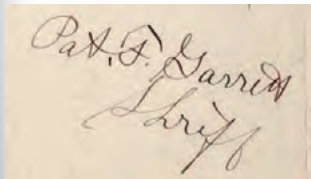 Pat. F. Garrett
Shriff